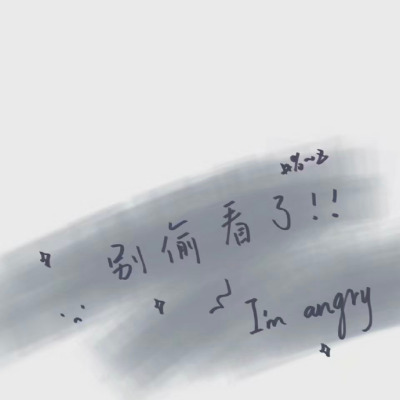 别偷看了!!
I'm angry